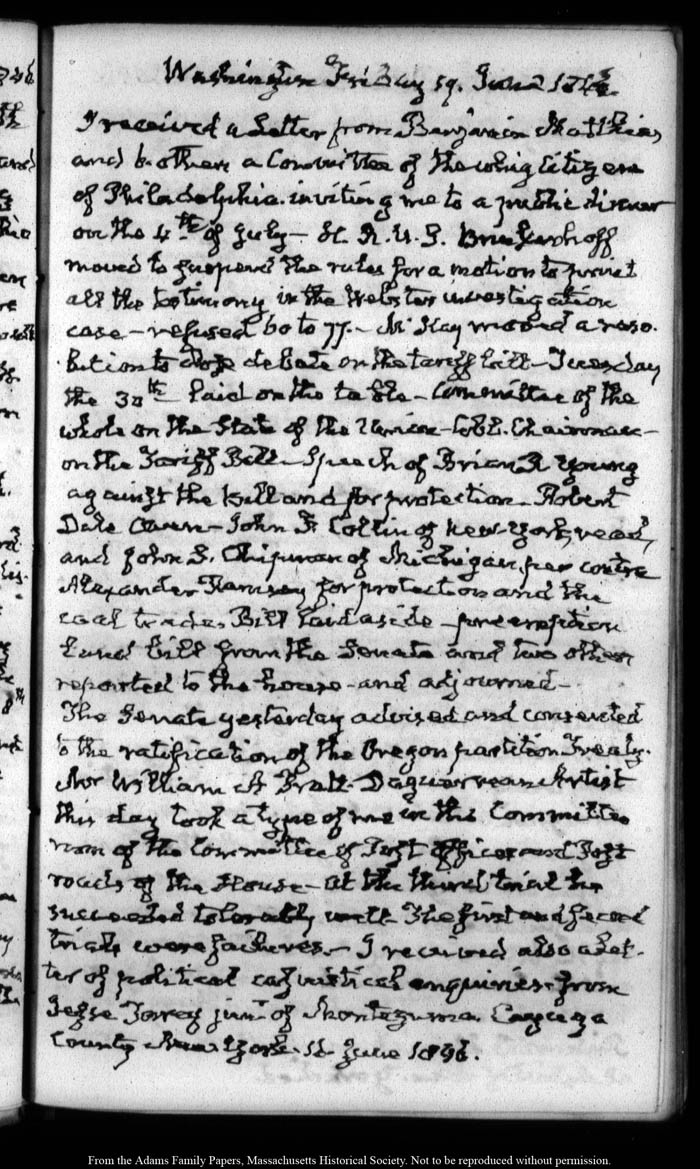 Washington Friday 19. June 1846.
I received a Letter from Benjamin Matthias
and 6 others a Committee of the whig citizens
of Philadelphia inviting me to a public dinner
on the 4th of July – H. R. U. S. Brinkerhoff
moved to suspend the rules for a motion to print
all the testimony in the Webster investigation
case – refused 60 to 77. – McKay moved a reso-
lution to close debate on the tariff bill – Tuesday
the 30th laid on the table – Committee of the
whole on the State of the Union – Cobb. Chairman –
on the Tariff Bill – Speech of Brian R Young
against the bill and for protection – Robert
Dale Owen – John F Collin of New-York, read,
and John S. Chipman of Michigan per contra
Alexander Ramsey for protection and the
coal trade. Bill laid aside – preemption
Land bill from the Senate and two others
reported to the house – and adjourned –
The Senate yesterday advised and consented
to the ratification of the Oregon partition Treaty.
Mr William A Pratt. Daguerrean Artist
this day took a type of me in the Committee
room of the Committee of Post offices and Post
roads of the House – at the third trial he
succeeded tolerably well. The first and second
trials were failures. – I received also a let-
ter of political casuistical enquiries from
Jesse Torrey junr of Montezuma Cayuga
County New York. June 1846.
From the Adams Family Papers, Massachusetts Historical Society. Not to be reproduced without permission.